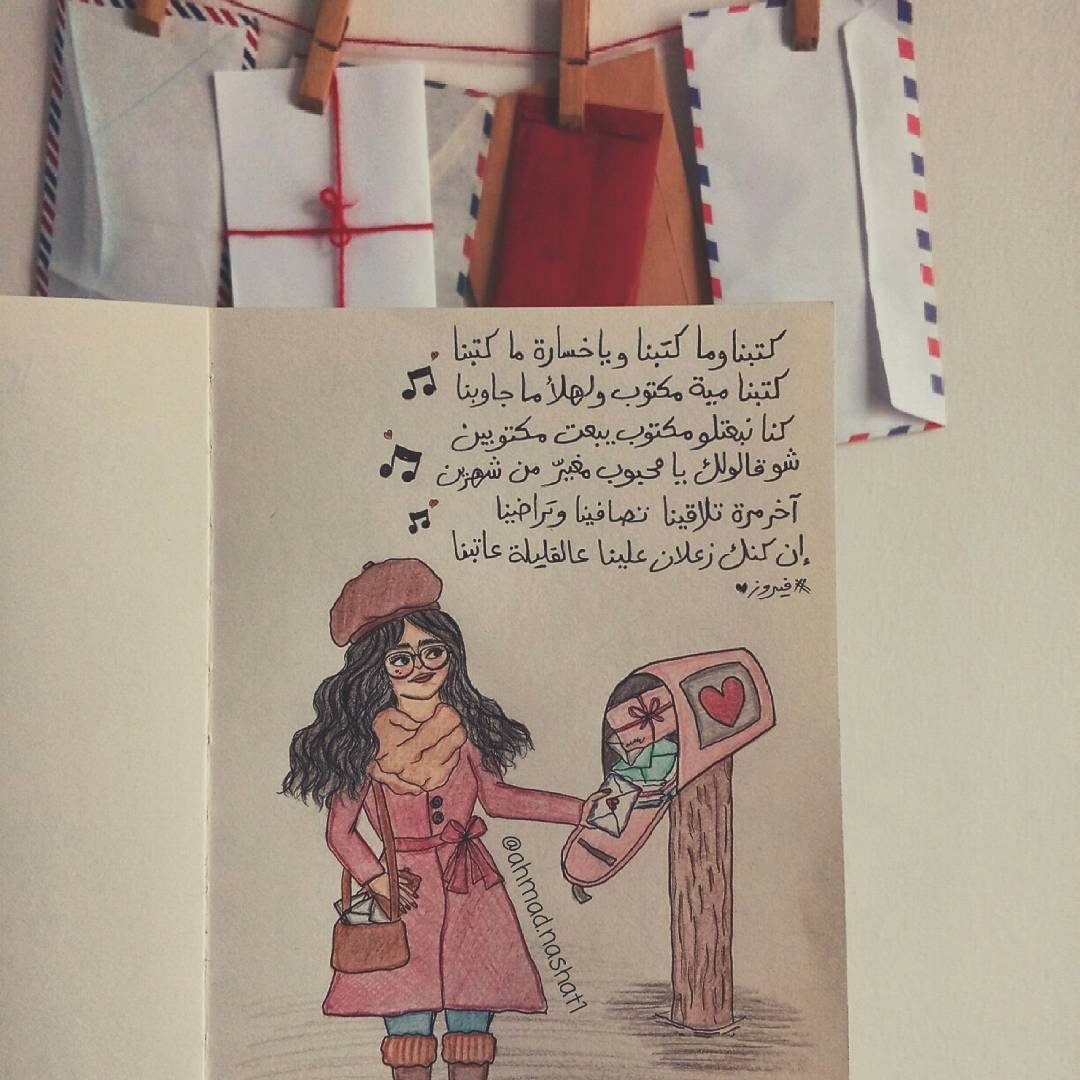 كتبنا وما كتَبنا ويا خسارة ما كتبنا
كتبنا مية مكتوب ولهلأ ما جاوبنا
كنا نبعتلو مكتوب يبعت مكتوبين
شو قالولك يا محبوب مغيرّ من شهرين
آخر مرة تلاقينا تصافينا وتَراضينا
إن كنك زعلان علينا عالقليلة عاتبنا
#فيروز♥
@ahmad.nashat1